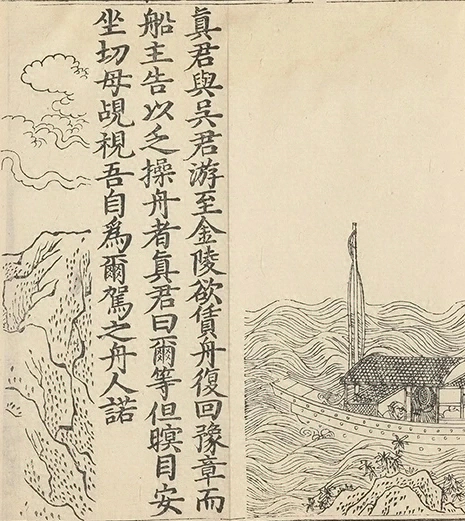 真君與吳君游至金陵欲賃舟復回豫章而
船主告以乏操舟者真君曰爾等但瞑目安
坐切毋覘視吾自為爾駕之舟人諾